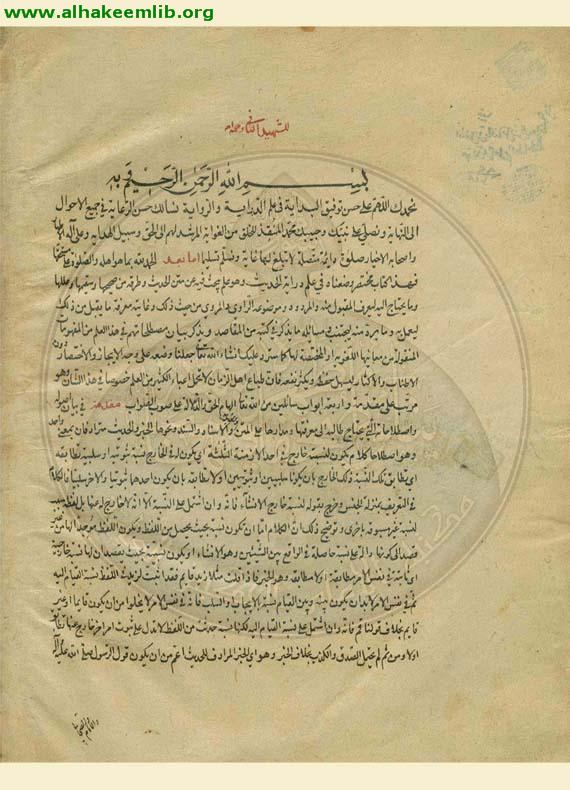 www.alhakeemlib.org
للشهيد الثاني رحمه الله
بسم الله الرحمن الرحيم وبه
نحمدك اللهم على حسن توفيق البداية في علم الدراية والرواية ونسألك حسن الرعاية في جميع الاحوال
الى النهاية ونصلى على نبيك وحبيبك محمد المنقذ للخلق من الغواية المرشد لهم الى الحق وسبيل الهداية وعلى آله
واصحابه الاخيار صلوة دائمة متصلة لا تبلغ لها غاية ونسلم تسليما اما بعد الحمد لله بما هو اهله والصلوة على
فهذا كتاب مختصر وضعناه في علم دراية الحديث وهو علم يبحث فيه عن متن الحديث وطرقه من صحيحها وسقيمها وعللها
وما يحتاج اليه ليعرف المقبول منه والمردود وموضوعه الراوي والمروي من حيث ذلك وغايته معرفة ما يقبل من ذلك
ليعمل به وما يرد منه ليجتنب ومسائله ما يذكر في كتبه من المقاصد ونذكر بيان مصطلحاتهم في هذا العلم من المفهومات
المنقولة من معانيها اللغوية او المخصصة لها كما سنرد عليك انشاء الله تعالى جعلنا وضعه على وجه الايجاز والاختصار دون
الاطناب والاكثار ليسهل حفظه ويكثر نفعه فان طباع اهل الزمان لا تتحمل اعباء الكثير من العلم خصوصا في هذا الشان وهو
مرتب على مقدمة واربعة ابواب سائلين من الله تعالى الهام الحق والدلالة على صوب الصواب مقدمة في بيان اصوله
واصطلاحاته التي يحتاج طالبه الى معرفتها ومدارها على المتن والاسناد والسند ونحوها الخبر والحديث مترادفان بمعنى واحد
وهو اصطلاحا كلام يكون لنسبته خارج في احد الازمنة الثلثة اي يكون له في الخارج نسبة ثبوتية او سلبية تطابقه
اي تطابق تلك النسبة ذلك الخارج بان يكونا سلبيين او ثبوتيين او لا تطابقه بان يكون احدهما ثبوتيا والاخر سلبيا فالكلام
في التعريف بمنزلة الجنس وخرج بقوله لنسبته خارج الانشاء فانه وان اشتمل على النسبة الا انه لا خارج له منها بل لفظه سبب
لنسبة غير مسبوقة باخرى وتوضيح ذلك ان الكلام اما ان تكون نسبته بحيث يحصل من اللفظ ويكون اللفظ موجدا لها من غير
قصد الى كونها دالة على نسبة حاصلة في الواقع بين الشيئين وهو الانشاء او يكون نسبته بحيث يقصد ان لها نسبة خارجية
اي ثابتة في نفس الامر مطابقة او لا مطابقة وهو الخبر فاذا قلت مثلا زيد قايم فقد اثبت لزيد في اللفظ نسبة القيام اليه
ثم في نفس الامر لا بد ان يكون بينه وبين القيام نسبة الايجاب والسلب فانه في نفس الامر لا يخلو من ان يكون قايما او غير
قايم بخلاف قولنا قم فانه وان اشتمل على نسبة القيام اليه لكنها نسبة حدثت من اللفظ لا تدل على ثبوت امر اخر خارج عنها تطابقه
اولا ومن ثم لم يحتمل الصدق والكذب بخلاف الخبر وهو اي الخبر المرادف للحديث اعم من ان يكون قول الرسول صلى الله عليه وآله
والامام والصحابى